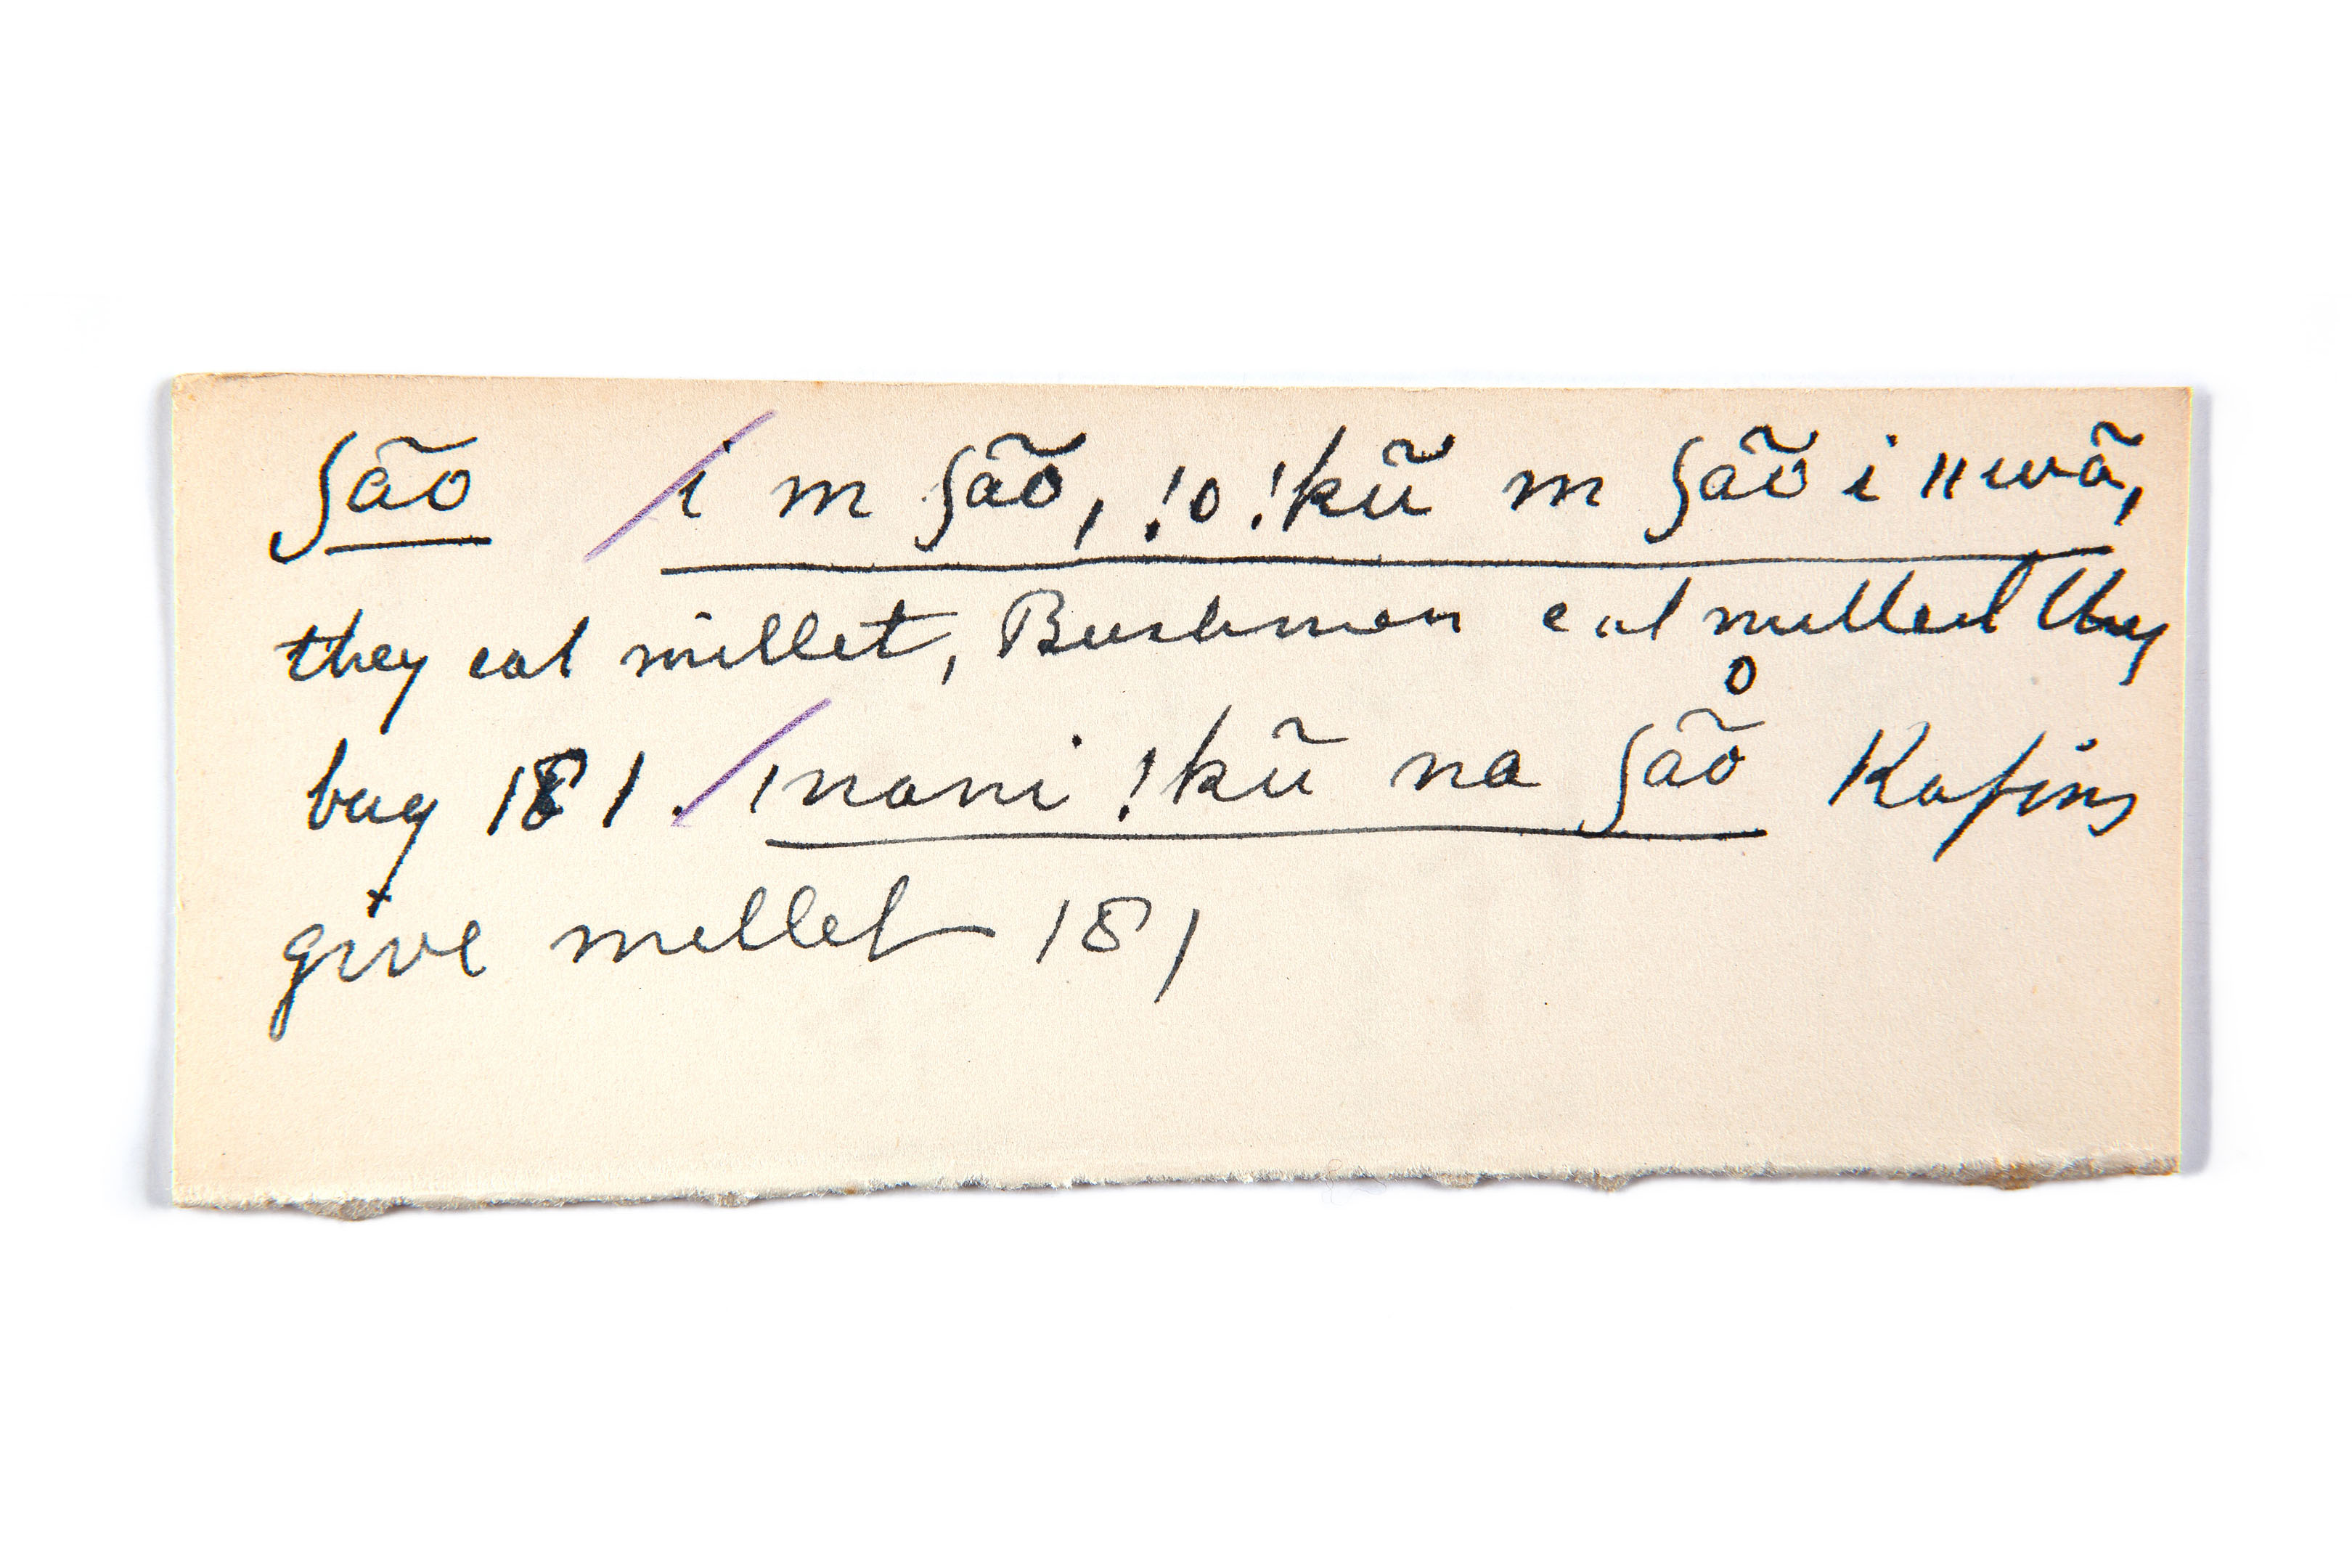 ʃão / i m ʃão, !o !kũ m ʃão i ǁwã,
they eat millet, Bushmen eat millet they
buy 181. / ǀnani !kũ na ʃão Kafirs
give millet 181